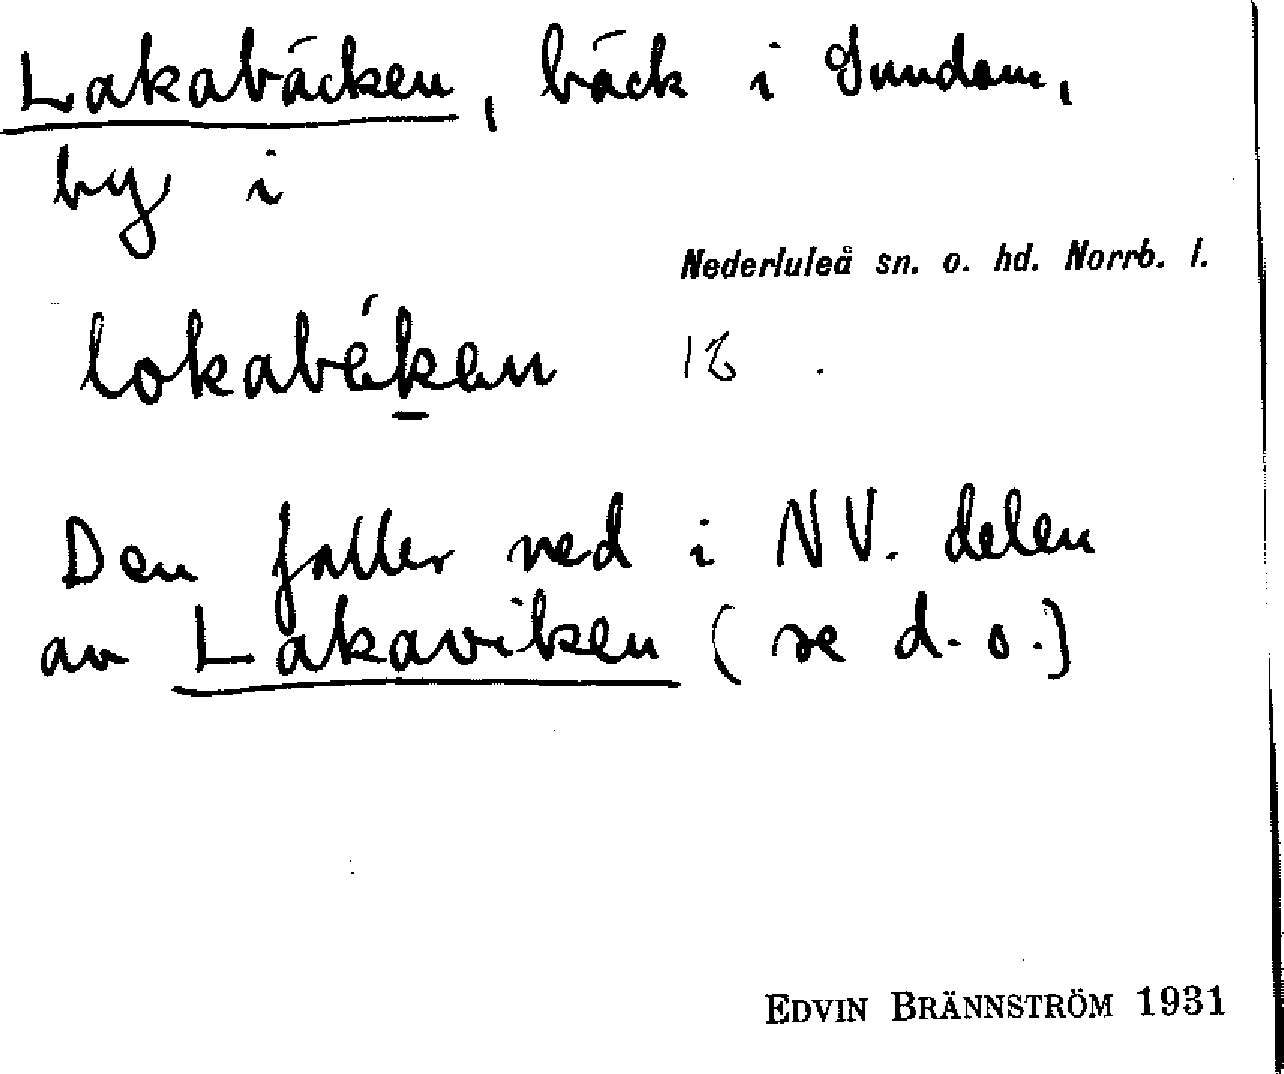 Lakabäcken, bäck i Sundom,
by i
Nederluleå sn. o. hd. Norrb. l.
lokabékan
Den faller ned i NV. delen
av Lakaviken (se d. o.)
EDVIN BRÄNNSTRÖM 1931